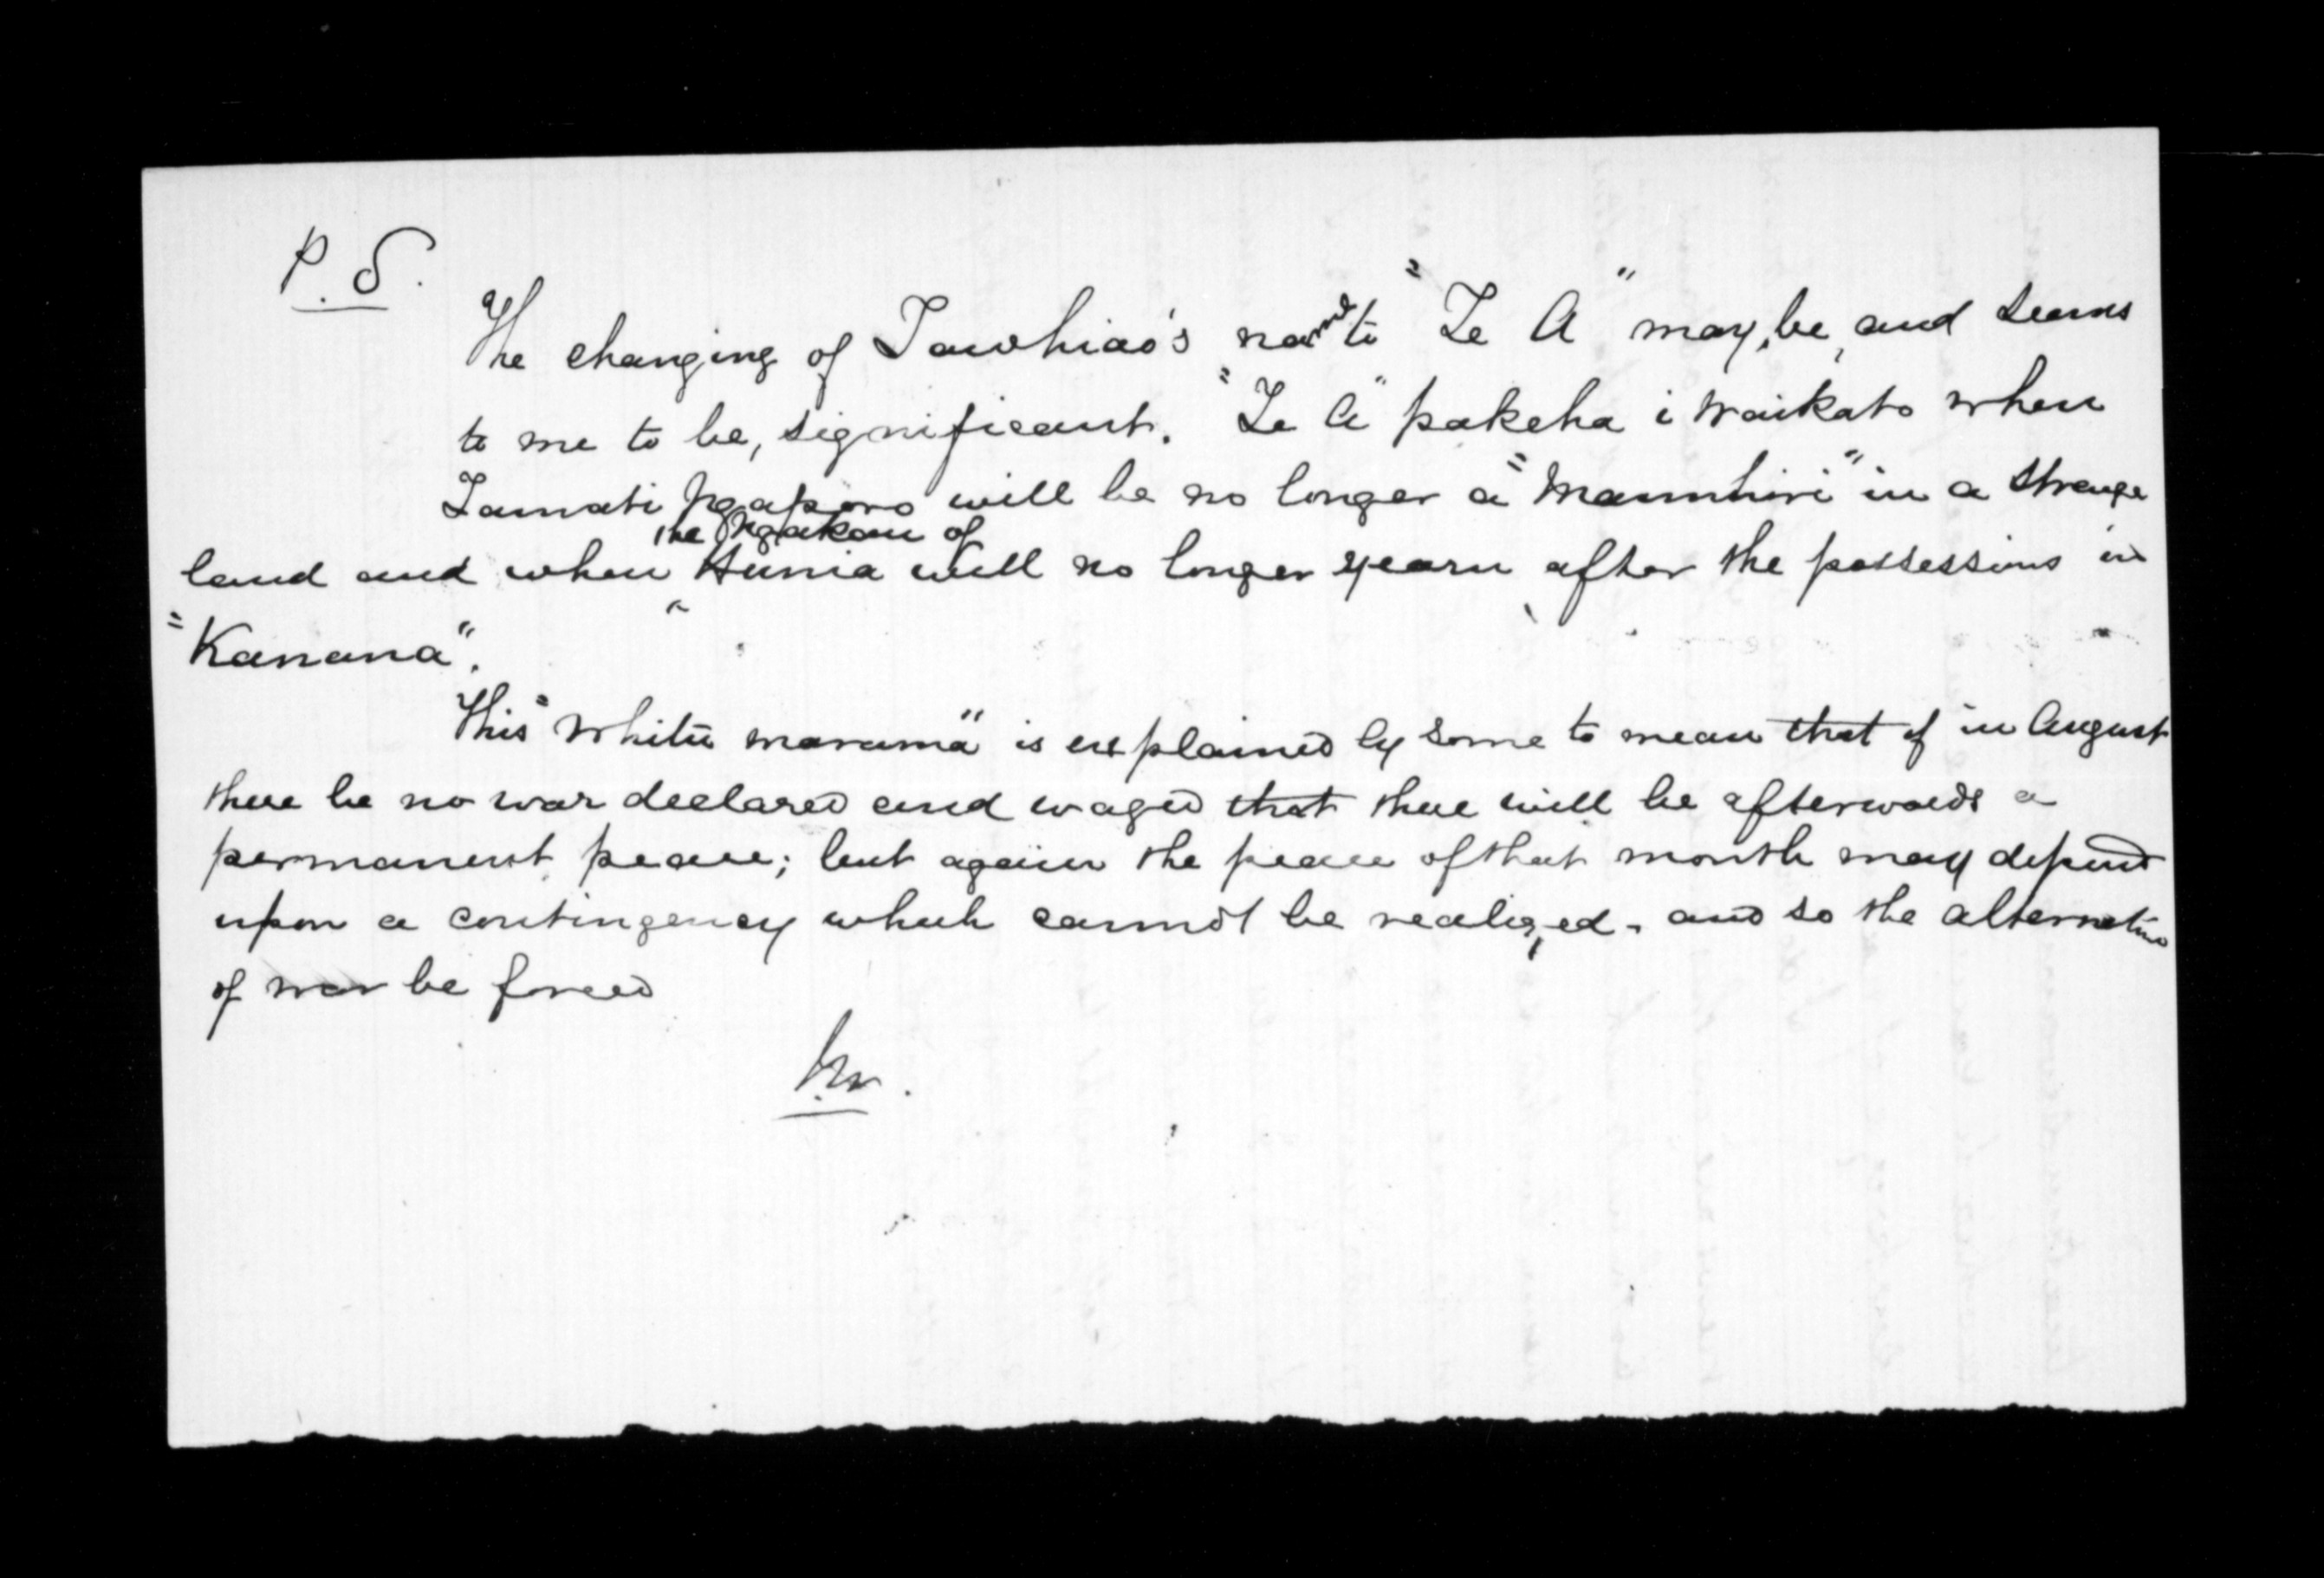 P.S.
The changing of Tawhiao's name to "Te A" may, be, and seems
to me to be, significant. "Te A" pakeha i Waikato when
Tamati Ngaporo will be no longer a "Manuhiri" in a strange
land and when the Ngakau of Hunia will no longer yearn after the possessions in
"Kanana".
This "Whitu marama" is explained by some to mean that if in August
there be no war declared and waged that there will be afterwards a
permanent peace; but again the peace of that month may depend
upon a contingency which cannot be realized, and so the alternative
of war be forced